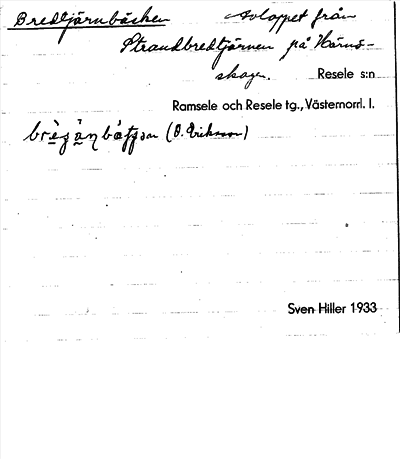 Bredtjärnbäcken Avloppet från
Strandbredtjärnen på Härnö-
skogen. Resele s:n
Ramsele och Resele tg., Västernorrl. l.
(O. Eriksson)
Sven Hiller 1933